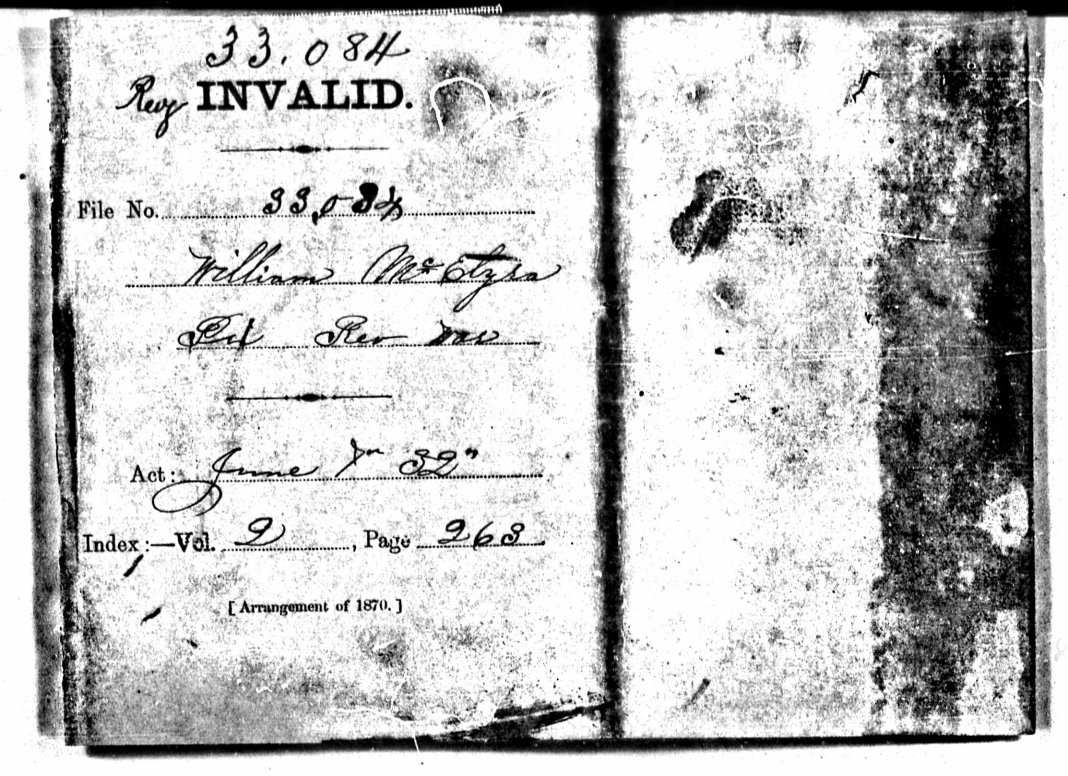 33.084
INVALID.
File No. 33,084
William Mc Elyea
Pvt Rev War
Act: June 7" 32"
Index:—Vol. 2, Page 263
[Arrangement of 1870.]